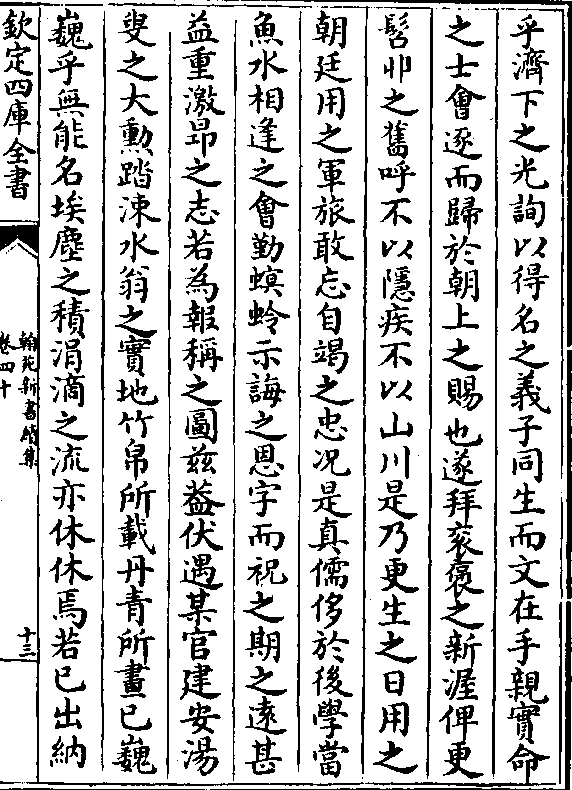 乎濟下之光詢以得名之義子同生而文在手親實命
之士會逐而歸於朝上之賜也遂拜衮褒之新渥俾更
髫丱之舊呼不以隱疾不以山川是乃更生之日用之
朝廷用之軍旅敢忘自竭之忠况是真儒侈於後學當
魚水相逢之會勤螟蛉示誨之恩字而祝之期之遠甚
益重激昂之志若為報稱之圖兹葢伏遇某官建安湯
叟之大勲踏涑水翁之實地竹帛所載丹青所畫已巍
巍乎無能名埃塵之積涓滴之流亦休休焉若已出納
欽定四庫全書
翰苑新書續集
卷四十
十三